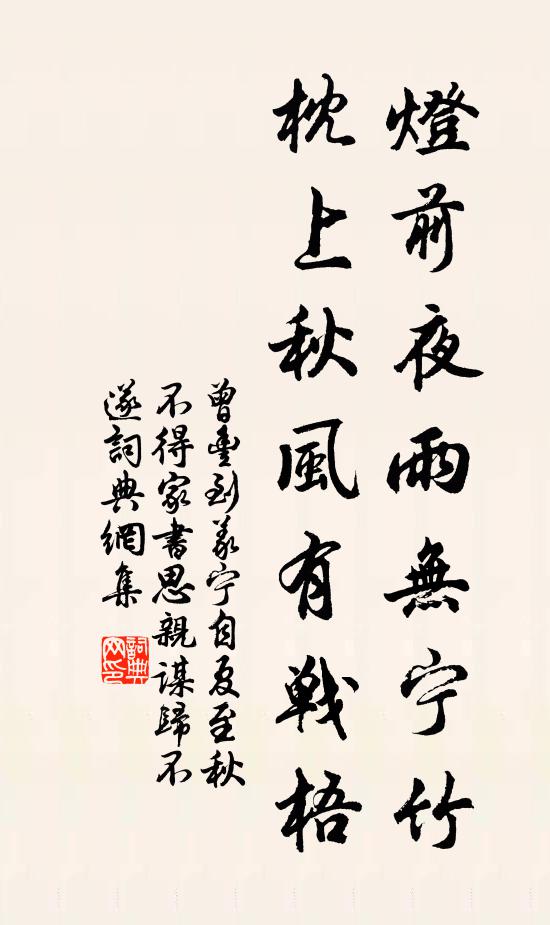 燈前夜雨無宁竹
枕上秋風有戰梧
曾豊到義宁自夏至秋
不得家書思親謀歸不
遂詞典網集
詞典网印